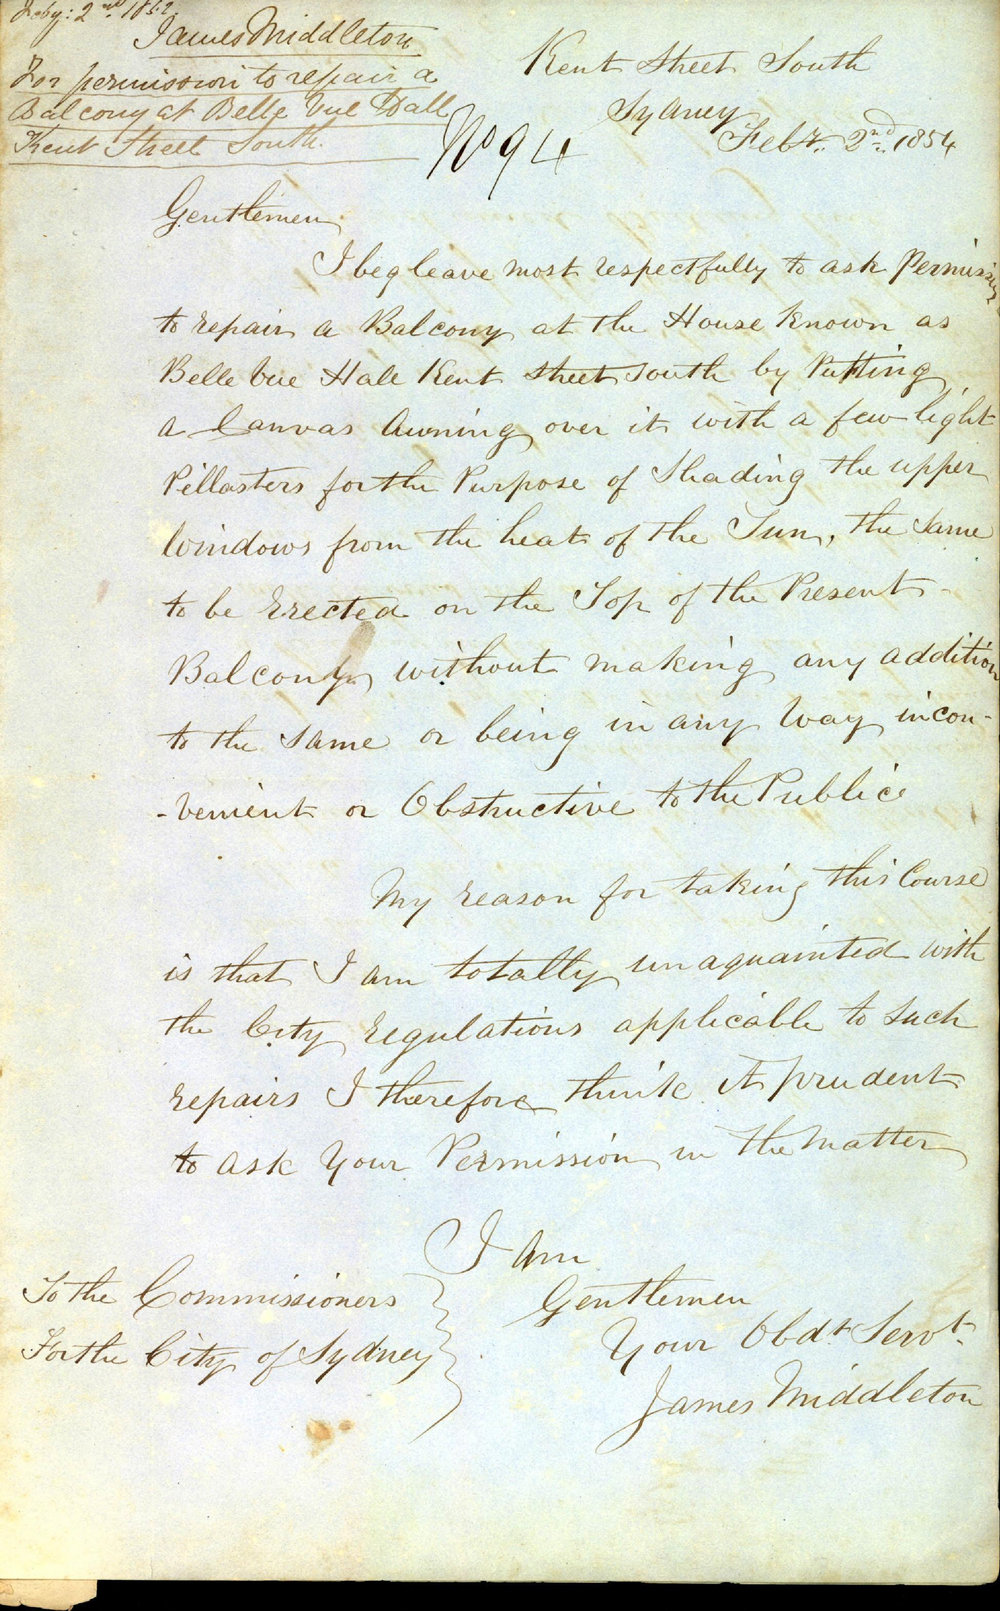 Feby: 2nd 1852.
James Middleton
For permission to repair a
Balcony at Belle Vue Hall
Kent Street South.
No 94
Kent Street South
Sydney
Feby. 2nd. 1854
Gentlemen
I beg leave most respectfully to ask Permission
to repair a Balcony at the House known as
Belle Vue Hale Kent Street South by Putting
a Canvas Awning over it with a few light
Pillasters for the Purpose of Shading the upper
Windows from the heat of the Sun, the Same
to be Erected on the Top of the Present
Balcony without making any addition
to the Same or being in any Way incon-
-venient or Obstructive to the Public
My reason for taking this Course
is that I am totally unaquainted with
the City regulations applicable to Such
repairs I therefore think it prudent
to ask Your Permission in the Matter
I am
Gentlemen
Your Obdt Servt.
James Middleton
To the Commissioners
For the City of Sydney